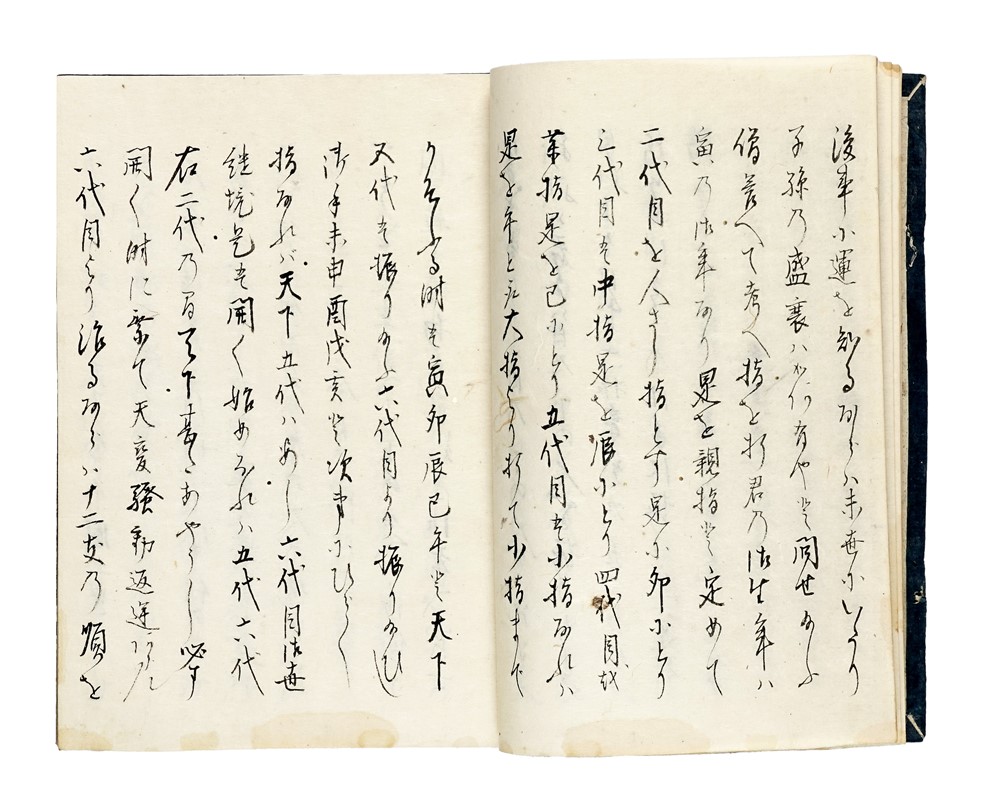 後事小運を知る而らハ末世ニいたり
子孫乃盛衰ハ如何有やと問せ給ふ
僧答へて考へ指を折君乃御生年ハ
寅乃御年なり是を親指と定めて
二代目を人さし指とす是に卯にとり
三代目を中指是を辰にとり四代目
薬指是を巳にとり五代目を小指なれハ
是を午と云大指より折て小指まて
時を寅卯辰巳午と天下
五代を握り給ふ六代目より握り給ひし
御手未申酉戌亥と次第にひらく
指なれハ天下五代ハめし六代目御世
継境是を開く始めなれハ五代六代
右二代乃間天下甚あやうし必す
開く時に乗て天変騒動返逆
六代目より治る而らハ十二支乃順を